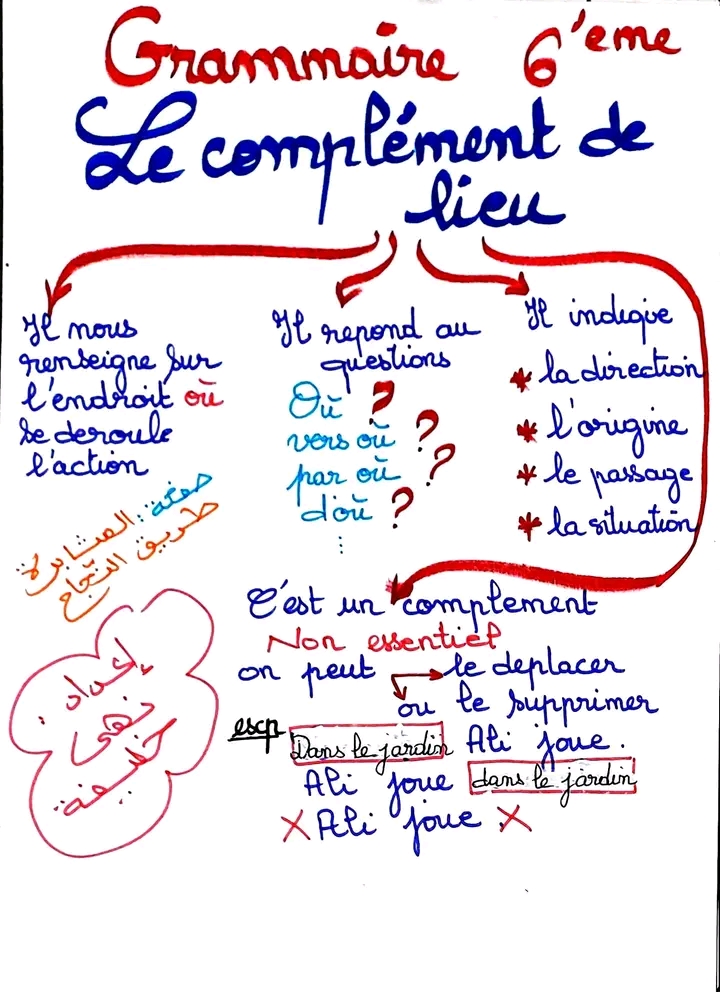 Grammaire 6'eme
Le complément de
lieu
Il nous
renseigne sur
l'endroit où
se deroule
l'action
Il repond au
questions
Où ?
vers où ?
par où ?
d'où ?
⋮
Il indique
* la direction
* l'origine
* le passage
* la situation
صفحة : المثابرة
طريق النجاح
إعداد :
نهى
خليفة
C'est un complement
Non essentiel
on peut le deplacer
ou le supprimer
exp
Dans le jardin Ali joue.
Ali joue dans le jardin
X Ali joue X